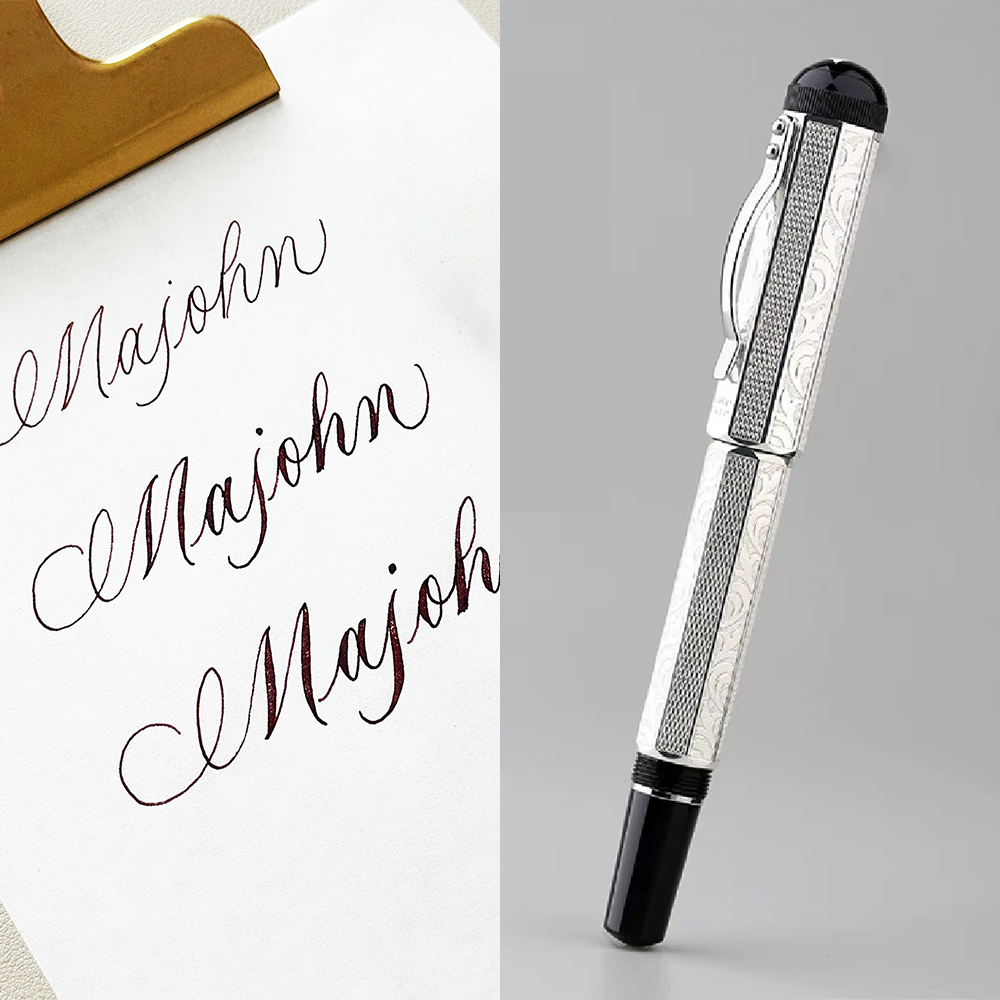 Majohn
Majohn
Majoh